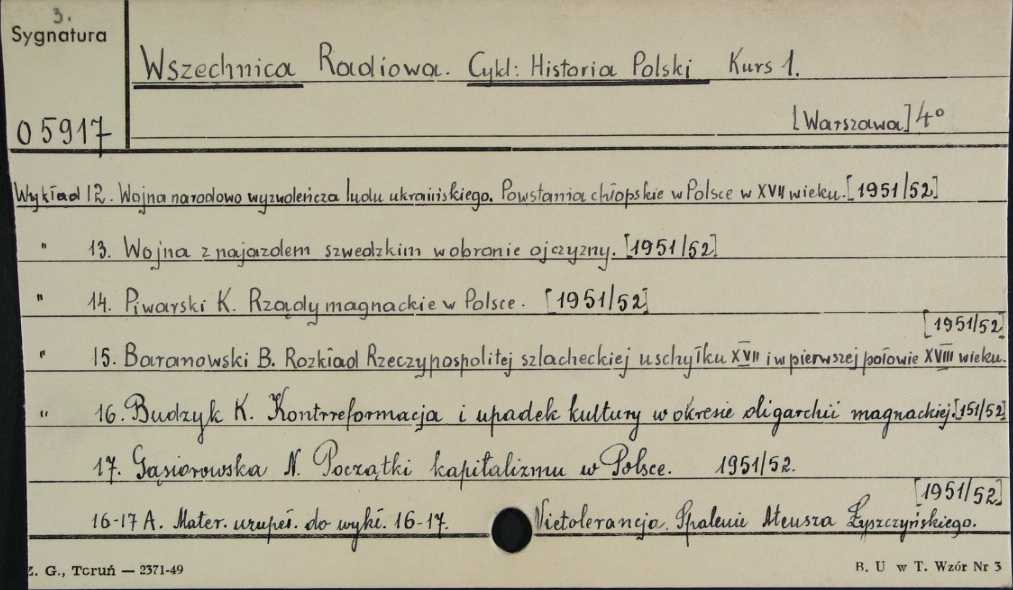 3.
Sygnatura
Wszechnica Radiowa. Cykl: Historia Polski Kurs 1.
O 5917
[Warszawa] 4°
Wykład 12. Wojna narodowo wyzwoleńcza ludu ukraińskiego. Powstania chłopskie w Polsce w XVII wieku. [1951/52]
" 13. Wojna z najazdem szwedzkim w obronie ojczyzny. [1951/52]
" 14. Piwarski K. Rządy magnackie w Polsce. [1951/52]
[1951/52]
" 15. Baranowski B. Rozkład Rzeczypospolitej szlacheckiej u schyłku XVII i w pierwszej połowie XVIII wieku.
" 16. Budzyk K. Kontrreformacja i upadek kultury w okresie oligarchii magnackiej. [151/52]
17. Gąsiorowska N. Początki kapitalizmu w Polsce. 1951/52.
[1951/52]
16-17 A. Mater. uzupeł. do wykł. 16-17. Nietolerancja. Spalenie Ateusza Łyszczyńskiego.
Z. G., Toruń — 2371-49
B. U w T. Wzór Nr 3